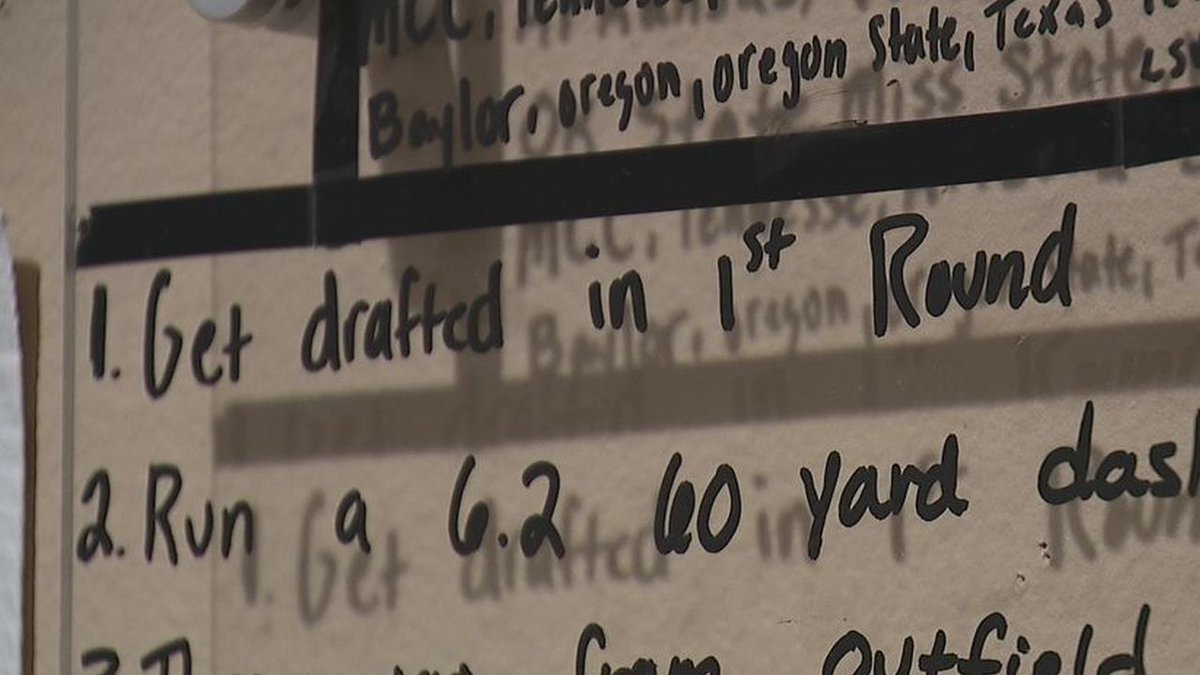 MCC, Tennessee,
Baylor, oregon, oregon State, Texas
LSU
1. Get drafted in 1st Round
2. Run a 6.2 60 yard dash
3. from outfield